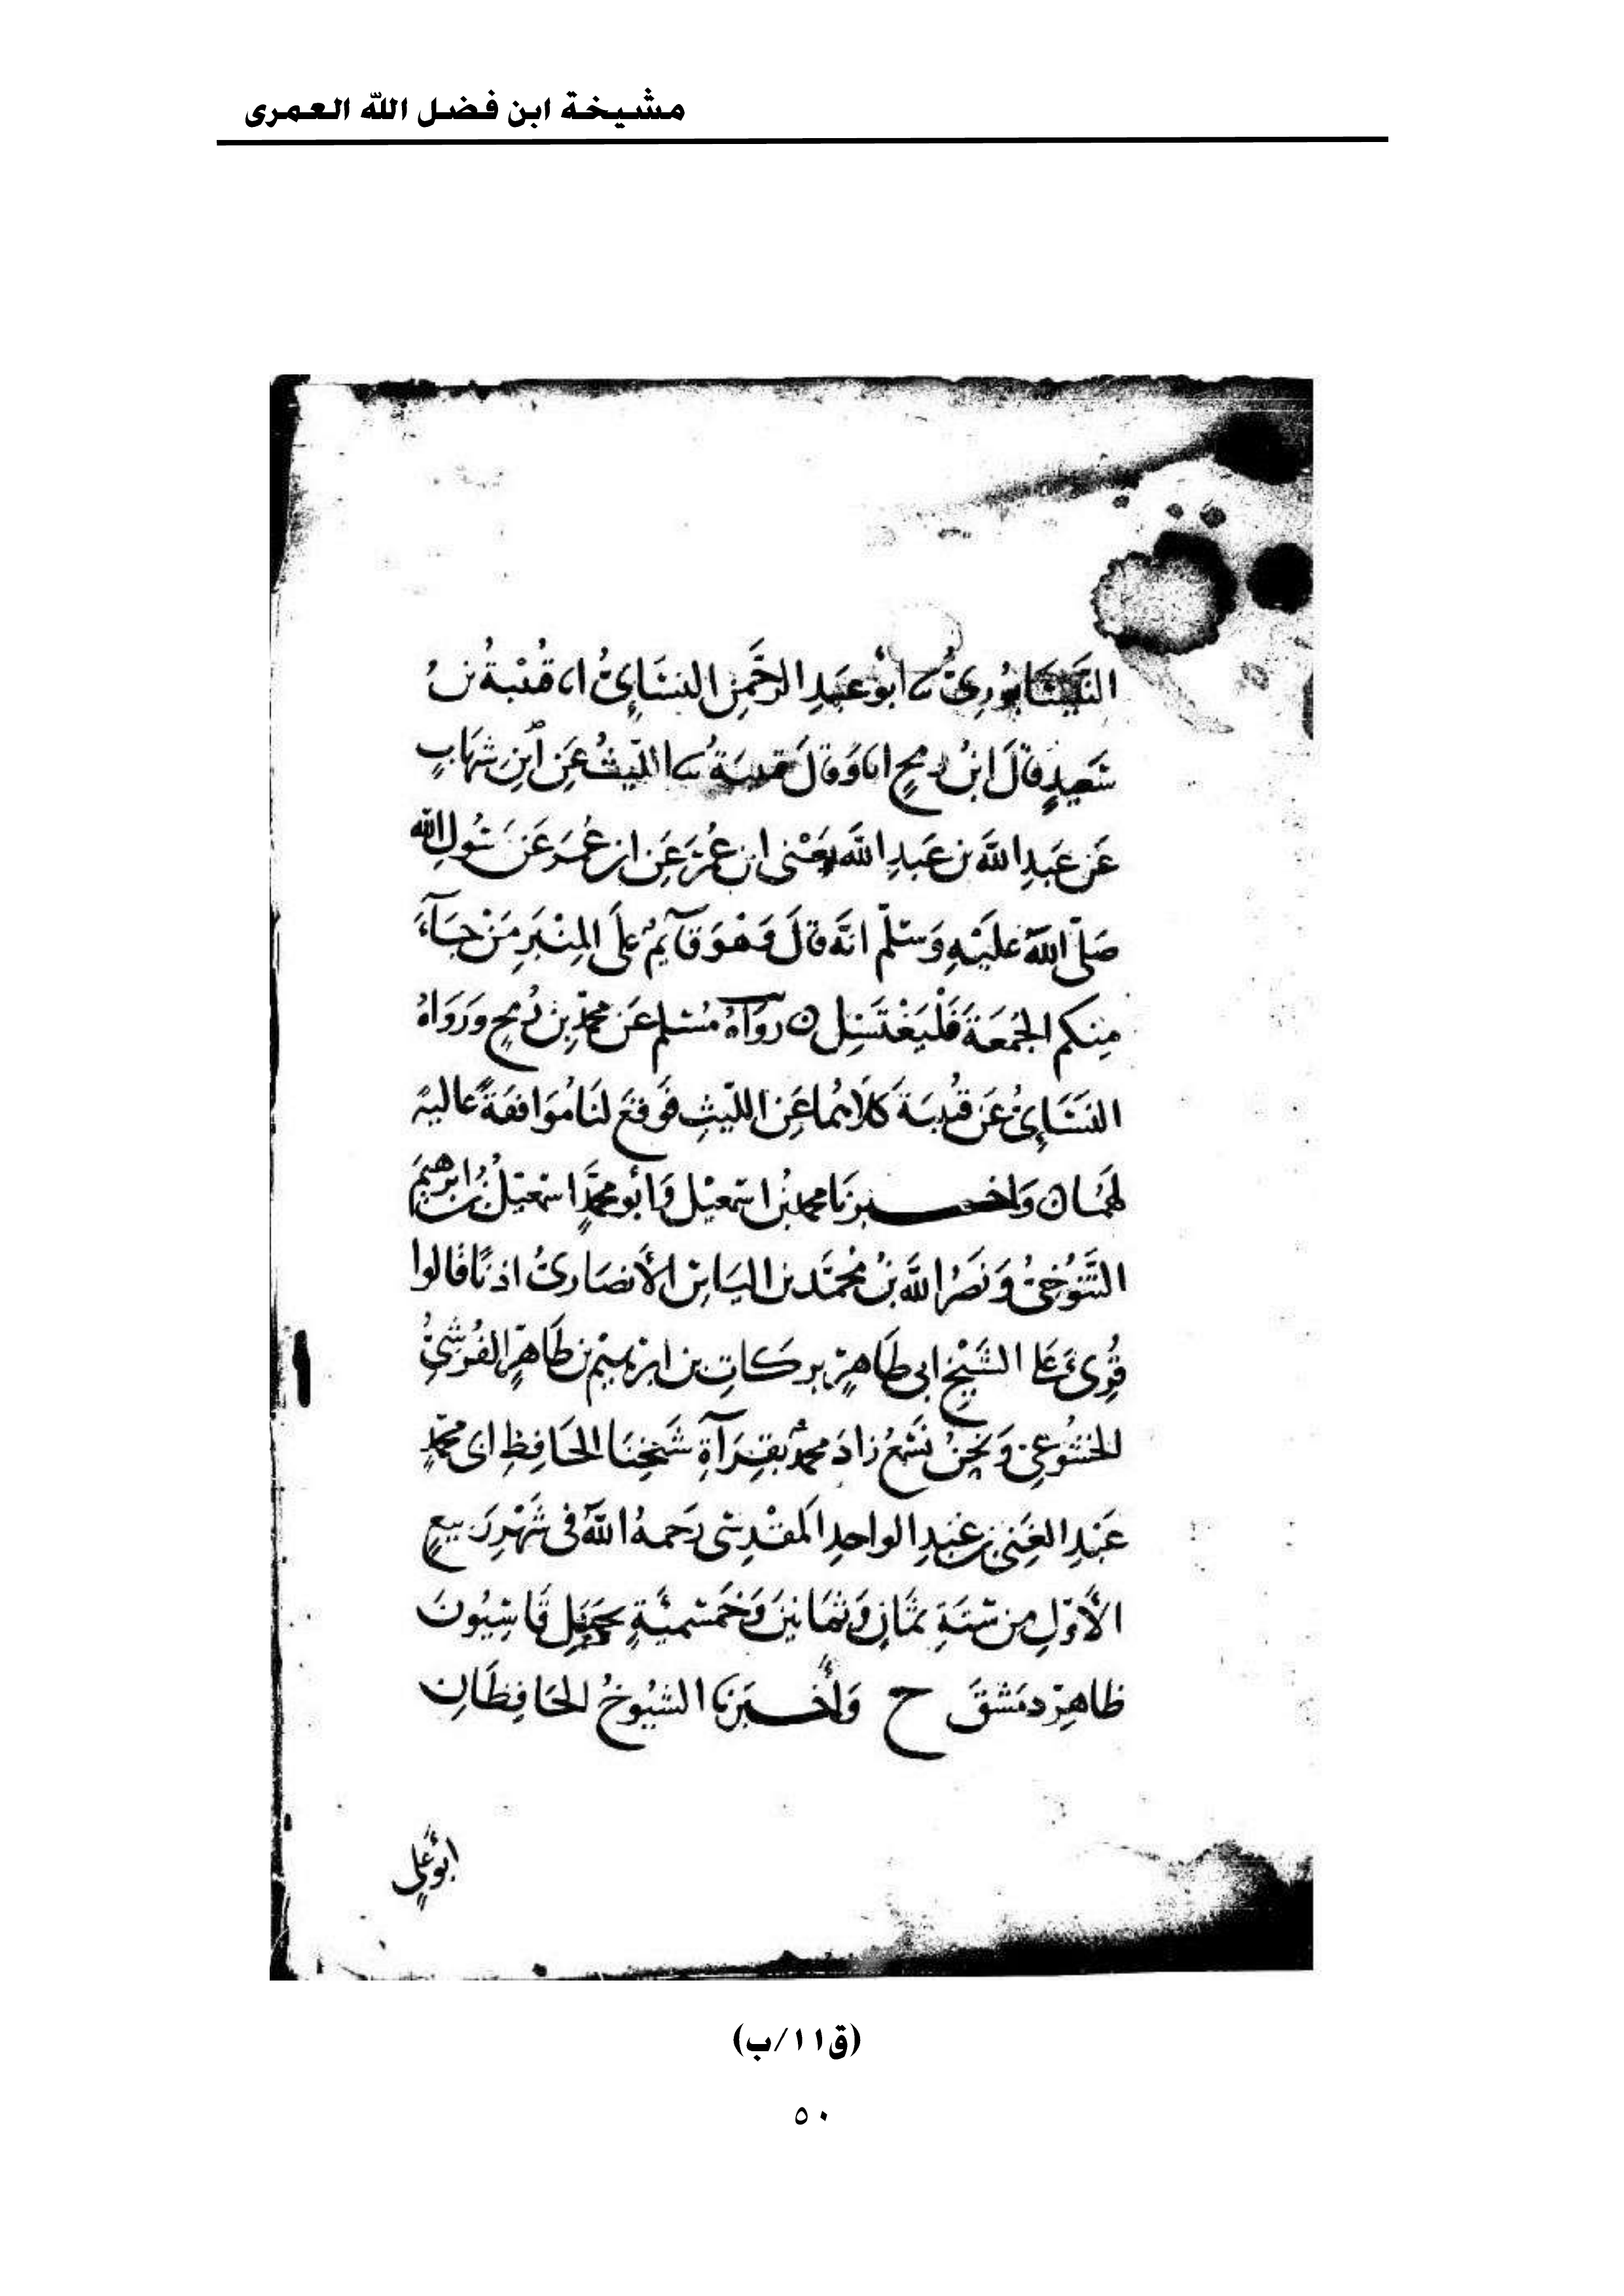 مشيخة ابن فضل الله العمرى
النَّيْسَابُورِيُّ ثنا أبُو عَبدِ الرَّحْمٰنِ النسَائِيُّ انا قُتَيْبَةُ بنُ
سَعِيدٍ قالَ ابْنُ رمحٍ انَا وَقالَ قتيبَةُ ثنا اللَّيثُ عَنِ ابْنِ شهَابٍ
عَن عَبدِ اللَّهِ بن عَبدِ اللَّهِ يَعْنى ابن عُمَرَ عَنِ ابن عُمَرَ عَن رَسُولِ الله
صَلَّى اللهُ عَليْهِ وَسَلَّم انَّه قالَ وَهْوَ قآيِمٌ عَلَى المِنْبَرِ مَنْ جَآءَ
مِنكم الجُمعَةَ فَلْيَغْتَسِل ٥ روَاهُ مُسْلم عَن محمَّدِ بْن رُمحٍ وَرَوَاهُ
النسَائِيُّ عَن قُتيبَةَ كلَاهُما عَنِ اللَّيثِ فَوقعَ لنَا مُوَافقَةً عَاليةً
لهُمَا ٥ وَاخبرنَا محمد بْنُ اسْمعيْل وَأبُو محمَّدٍ اسْمعيْل بْنُ ابرهيمَ
التَّنُوْخيُّ وَنَصْرُ اللَّهِ بْنُ مُحمَّد بن اليَاسَ الأنصَارىُّ اذنًا قالوا
قُرِئَ عَلى الشَّيْخِ ابى طَاهِرٍ بركَاتِ بن ابرهيم بن طَاهِرٍ القُرَشِيِّ
الخشُوْعى وَنَحْنُ نَسْمعُ زادَ محمدٌ بقِرَآةِ شَيْخِنَا الحَافِظِ ابى محمّدٍ
عَبْدِ الغَنِي بن عَبْدِ الواحدِ المقْدسى رَحمهُ اللهُ فى شَهْرِ رَبيعٍ
الأوّلِ من سَنَةِ ثمَانٍ وَثمَانينَ وَخَمْسميَّةٍ بجَبَلِ قَاسِيُونَ
ظاهِر دمَشْقَ ح وَأخبَرنَا الشيُوْخُ الحَافِظَانِ
أبُو عَلى
(ق١١/ب)
٥٠